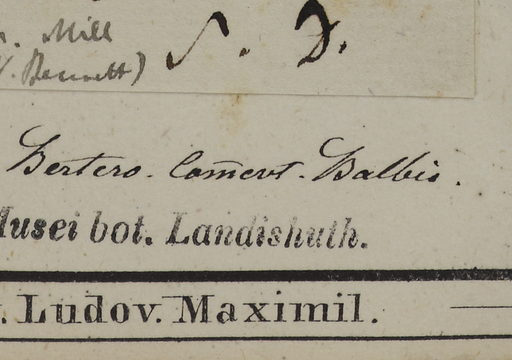 . Mill
Bennett) S. D.
Bertero. Com̄ert. Balbis.
Musei bot. Landishuth.
. Ludov. Maximil.